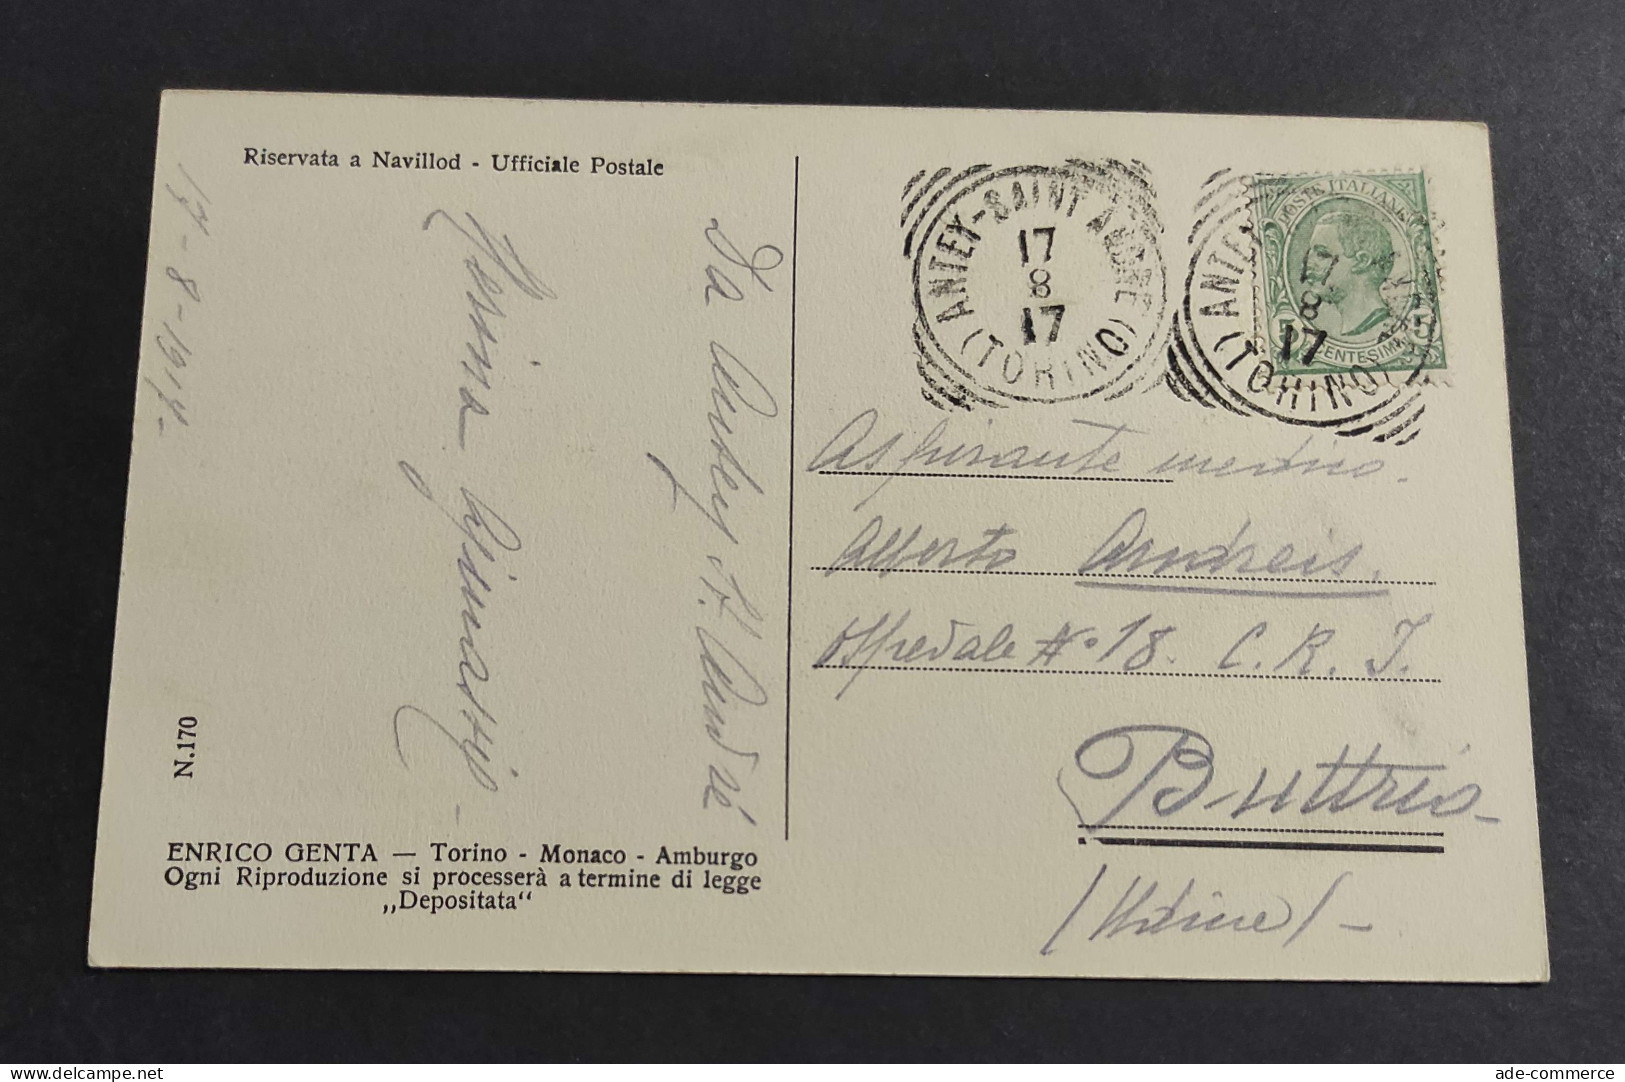 Riservata a Navillod - Ufficiale Postale
17-8-1917-
Da Antey St. André
N.170
ENRICO GENTA — Torino - Monaco - Amburgo
Ogni Riproduzione si processerà a termine di legge
„Depositata“
ANTEY-SAINT ANDRE
17
8
17
(TORINO)
POSTE ITALIANE
5 CENTESIMI 5
17
8
17
(TORINO)
Aspirante medico.
Alberto Andreis.
Ospedale N° 18. C. R. I.
Buttrio-
(Udine)-
delcampe.net
ade-commerce